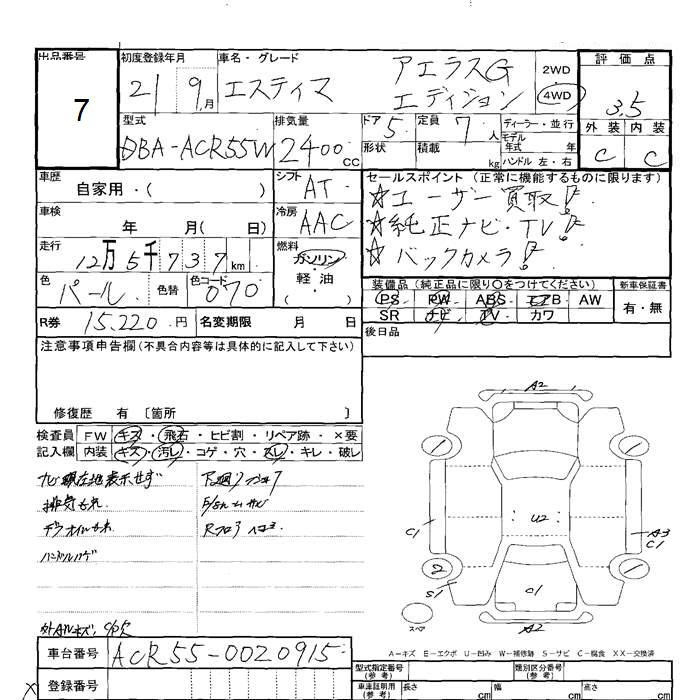 出品番号
7
初度登録年月
21 9 月
車名・グレード
エスティマ アエラスG
エディション
2WD
4WD
評価点
3.5
外装 内装
C C
型式
DBA-ACR55W
排気量
2400 cc
ドア 5
形状
定員 7 人
積載 kg
ディーラー・並行
モデル
年式 年
ハンドル 左・右
車歴
自家用・( )
シフト
AT
セールスポイント (正常に機能するものに限ります)
☆ユーザー買取!
☆純正ナビ・TV!
☆バックカメラ!
車検
年 月( 日)
冷房
AAC
走行
12万5千737 km
燃料
ガソリン
軽・油
( )
色
パール
色替
色コード
070
装備品 (純正品に限り○をつけてください)
PS PW ABS エアB AW
SR ナビ TV カワ
新車保証書
有・無
R券 15,220 円 名変期限 月 日
後日品
注意事項申告欄(不具合内容等は具体的に記入して下さい)
修復歴 有 〔箇所 〕
検査員 FW キズ・飛石・ヒビ割・リペア跡・×要
記入欄 内装 キズ・汚レ・コゲ・穴・スレ・キレ・破レ
ナビ現在地表示せず
排気もれ
デフオイルもれ
ハンドルハゲ
下廻り
A2
C1
U2
A3
C1
2
S1
C1
スペア
A2
A－キズ E－エクボ U－凹み W－補修跡 S－サビ C－腐食 XX－交換済
車台番号 ACR55-0020915
登録番号
型式指定番号
(参考)
類別区分番号
(参考)
車庫証明用
(参考)
長さ cm 幅 cm 高さ cm